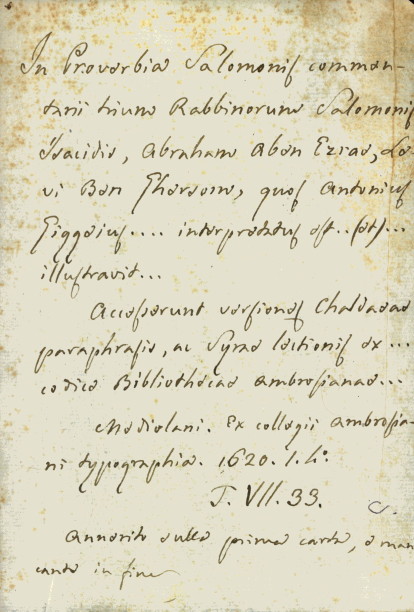 In Proverbia Salomonis commen-
tarii trium Rabbinorum Salomonis
Isacidis, Abraham Aben Ezrae, Le-
vi Ben Ghersom, quos Antonius
Giggeius.... interpretatus est..(et)...
illustravit...
Accesserunt versiones Chaldaeae
paraphrasis, ac Syrae lectionis ex...
codice Bibliothecae Ambrosianae...
Mediolani. Ex collegii Ambrosia-
ni typographia. 1620. 1. 4º
T. VII. 33.
Annerito sulla prima carta, e man
cante in fine